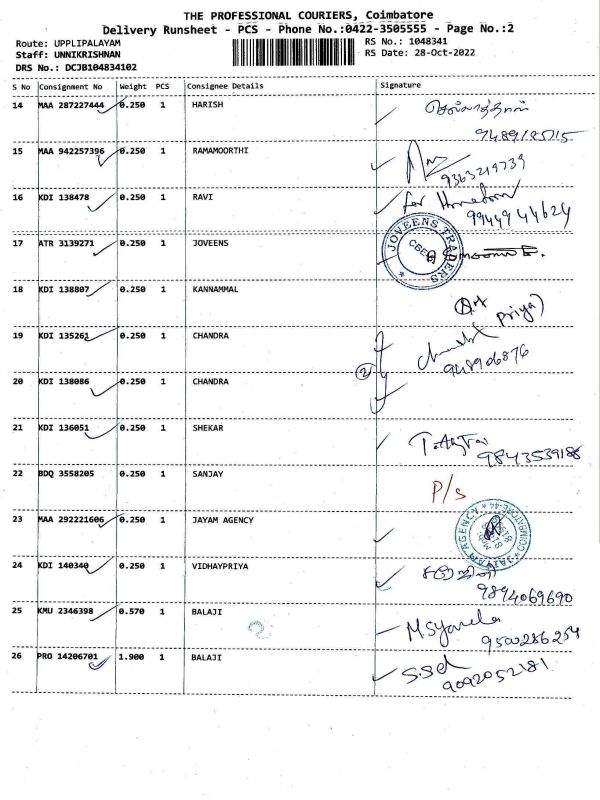 THE PROFESSIONAL COURIERS, Coimbatore
Delivery Runsheet - PCS - Phone No.:0422-3505555 - Page No.:2
Route: UPPLIPALAYAM RS No.: 1048341
Staff: UNNIKRISHNAN RS Date: 28-Oct-2022
DRS No.: DCJB104834102
S No Consignment No Weight PCS Consignee Details Signature
14 MAA 287227444 0.250 1 HARISH
9489185715
15 MAA 942257396 0.250 1 RAMAMOORTHI
9363219739
16 KDI 138478 0.250 1 RAVI for
9944944624
17 ATR 3139271 0.250 1 JOVEENS JOVEENS TRADERS
CBE
18 KDI 138807 0.250 1 KANNAMMAL
Priya)
19 KDI 135261 0.250 1 CHANDRA
2
20 KDI 138086 0.250 1 CHANDRA
21 KDI 136051 0.250 1 SHEKAR
9843539186
22 BDQ 3558205 0.250 1 SANJAY P/s
23 MAA 292221606 0.250 1 JAYAM AGENCY JAYAM AGENCY
24 KDI 140340 0.250 1 VIDHAYPRIYA
9894069690
25 KMU 2346398 0.570 1 BALAJI
9500286254
26 PRO 14206701 1.900 1 BALAJI
9092052181